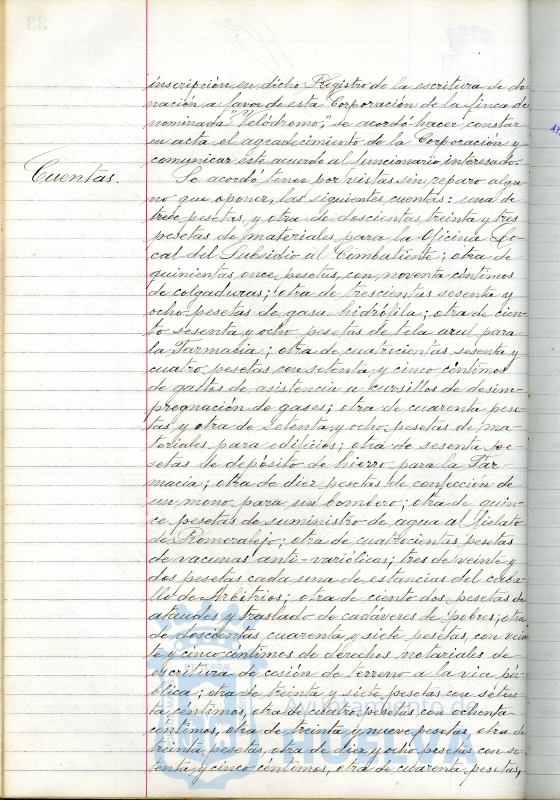 inscripción en dicho Registro de la escritura de do-
nación a favor de esta Corporación de la finca de
nominada "Velódromo," se acordó hacer constar
en acta el agradecimiento de la Corporación y
comunicar éste acuerdo al funcionario interesado.
Cuentas.
Se acordó tener por vistas sin reparo algu
no que oponer, las siguientes cuentas: una de
trece pesetas, y otra de doscientas treinta y tres
pesetas de materiales para la Oficina Lo-
cal del Subsidio al Combatiente; otra de
quinientas once pesetas, con noventa céntimos
de colgaduras; otra de trescientas sesenta y
ocho pesetas de gasa hidrófila; otra de cien-
to sesenta y ocho pesetas de tela azul para
la Farmacia; otra de cuatrocientas sesenta y
cuatro pesetas con setenta y cinco céntimos
de gastos de asistencia a cursillos de desim-
pregnación de gases; otra de cuarenta pese
tas y otra de setenta y ocho pesetas de ma-
teriales para edificios; otra de sesenta pe
setas de depósito de hierro para la Far-
macia; otra de diez pesetas de confección de
un mono para un bombero; otra de quin-
ce pesetas de suministro de agua al Fielato
de Romeralejo; otra de cuatrocientas pesetas
de vacunas anti-variólicas; tres de veinte y
dos pesetas cada una de estancias del caba-
llo de Arbitrios; otra de ciento dos pesetas de
ataudes y traslado de cadáveres de pobres; otra
de doscientas cuarenta y siete pesetas, con vein
te y cinco céntimos de derechos notariales de
escritura de cesión de terreno a la via pú-
blica; otra de treinta y siete pesetas con seten-
ta céntimos, otra de cuatro pesetas con ochenta
céntimos, otra de treinta y nueve pesetas, otra de
treinta pesetas, otra de diez y ocho pesetas con se-
tenta y cinco céntimos, otra de cuarenta pesetas,
Ayuntamiento de
HUELVA